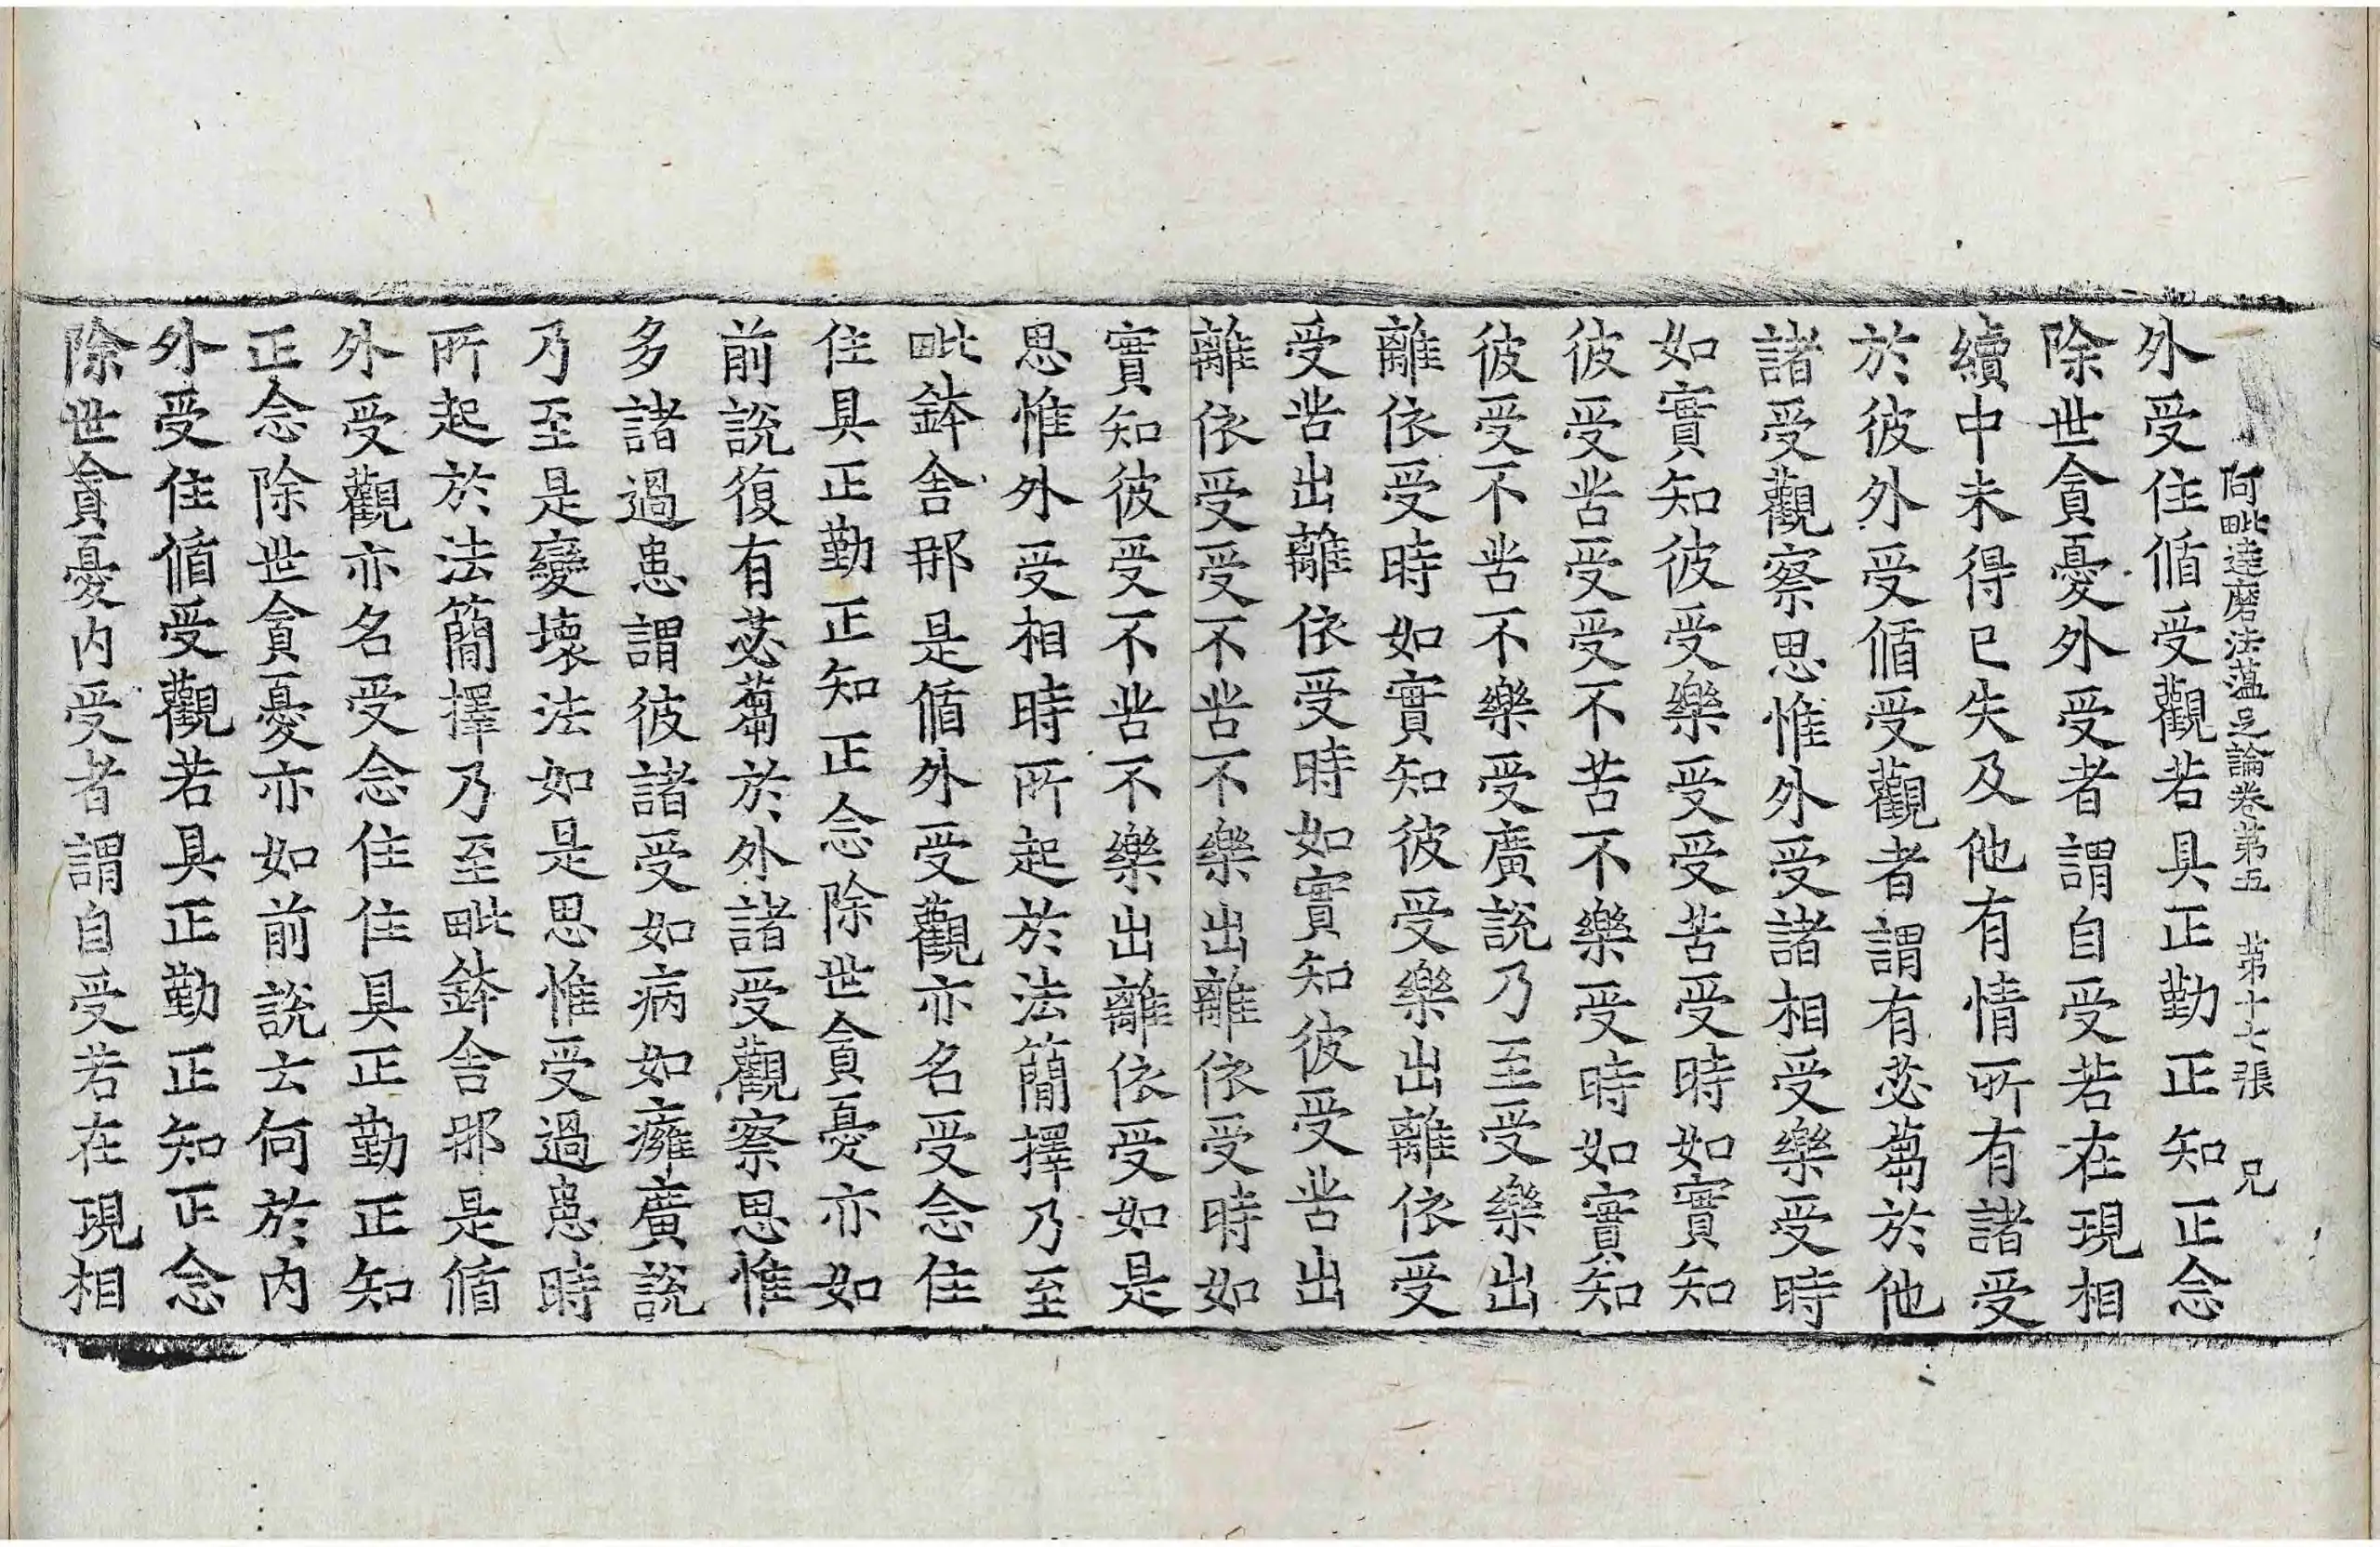 阿毗達磨法蕴足論卷第五　第十七張　兄
外受住循受觀若具正勤正知正念
除世貪憂外受者謂自受若在現相
續中未得已失及他有情所有諸受
於彼外受循受觀者謂有苾蒭於他
諸受觀察思惟外受諸相受樂受時
如實知彼受樂受受苦受時如實知
彼受苦受受不苦不樂受時如實知
彼受不苦不樂受廣說乃至受樂出
離依受時如實知彼受樂出離依受
受苦出離依受時如實知彼受苦出
離依受受不苦不樂出離依受時如
實知彼受不苦不樂出離依受如是
思惟外受相時所起於法簡擇乃至
毗鉢舍那是循外受觀亦名受念住
住具正勤正知正念除世貪憂亦如
前說復有苾蒭於外諸受觀察思惟
多諸過患謂彼諸受如病如癰廣說
乃至是變壞法如是思惟受過患時
所起於法簡擇乃至毗鉢舍那是循
外受觀亦名受念住住具正勤正知
正念除世貪憂亦如前說云何於内
外受住循受觀若具正勤正知正念
除世貪憂内受者謂自受若在現相